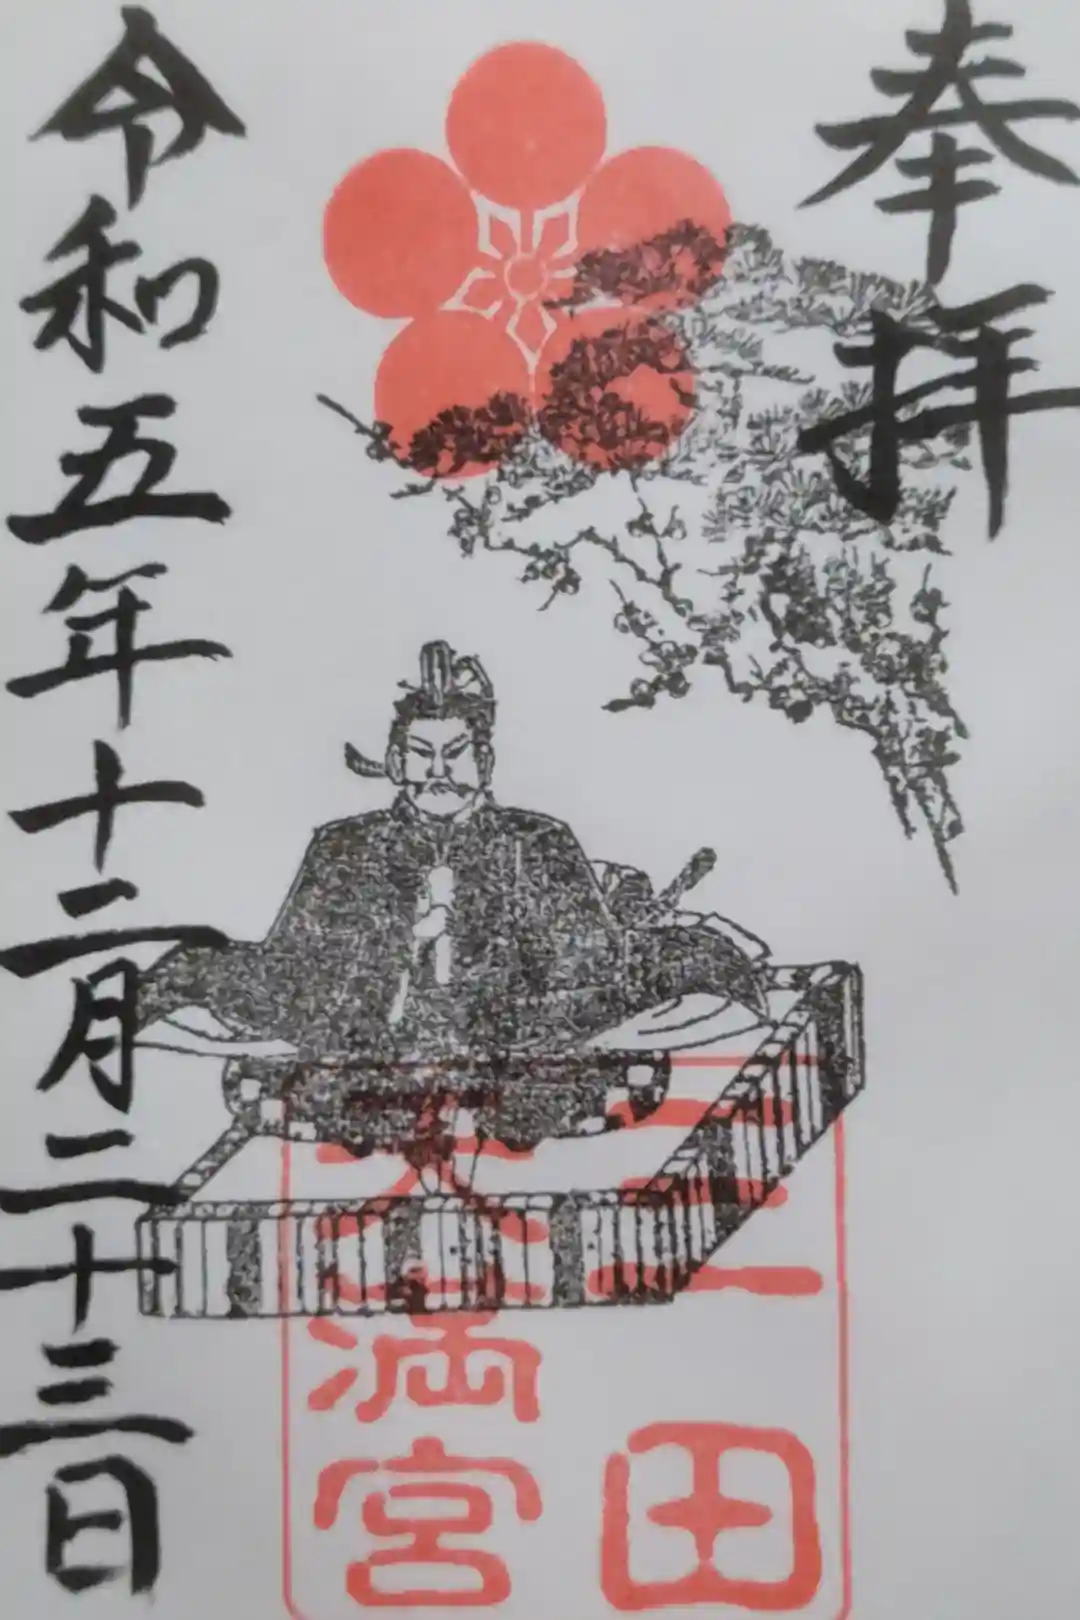 奉拝
三田
天満宮
令和五年十二月二十三日